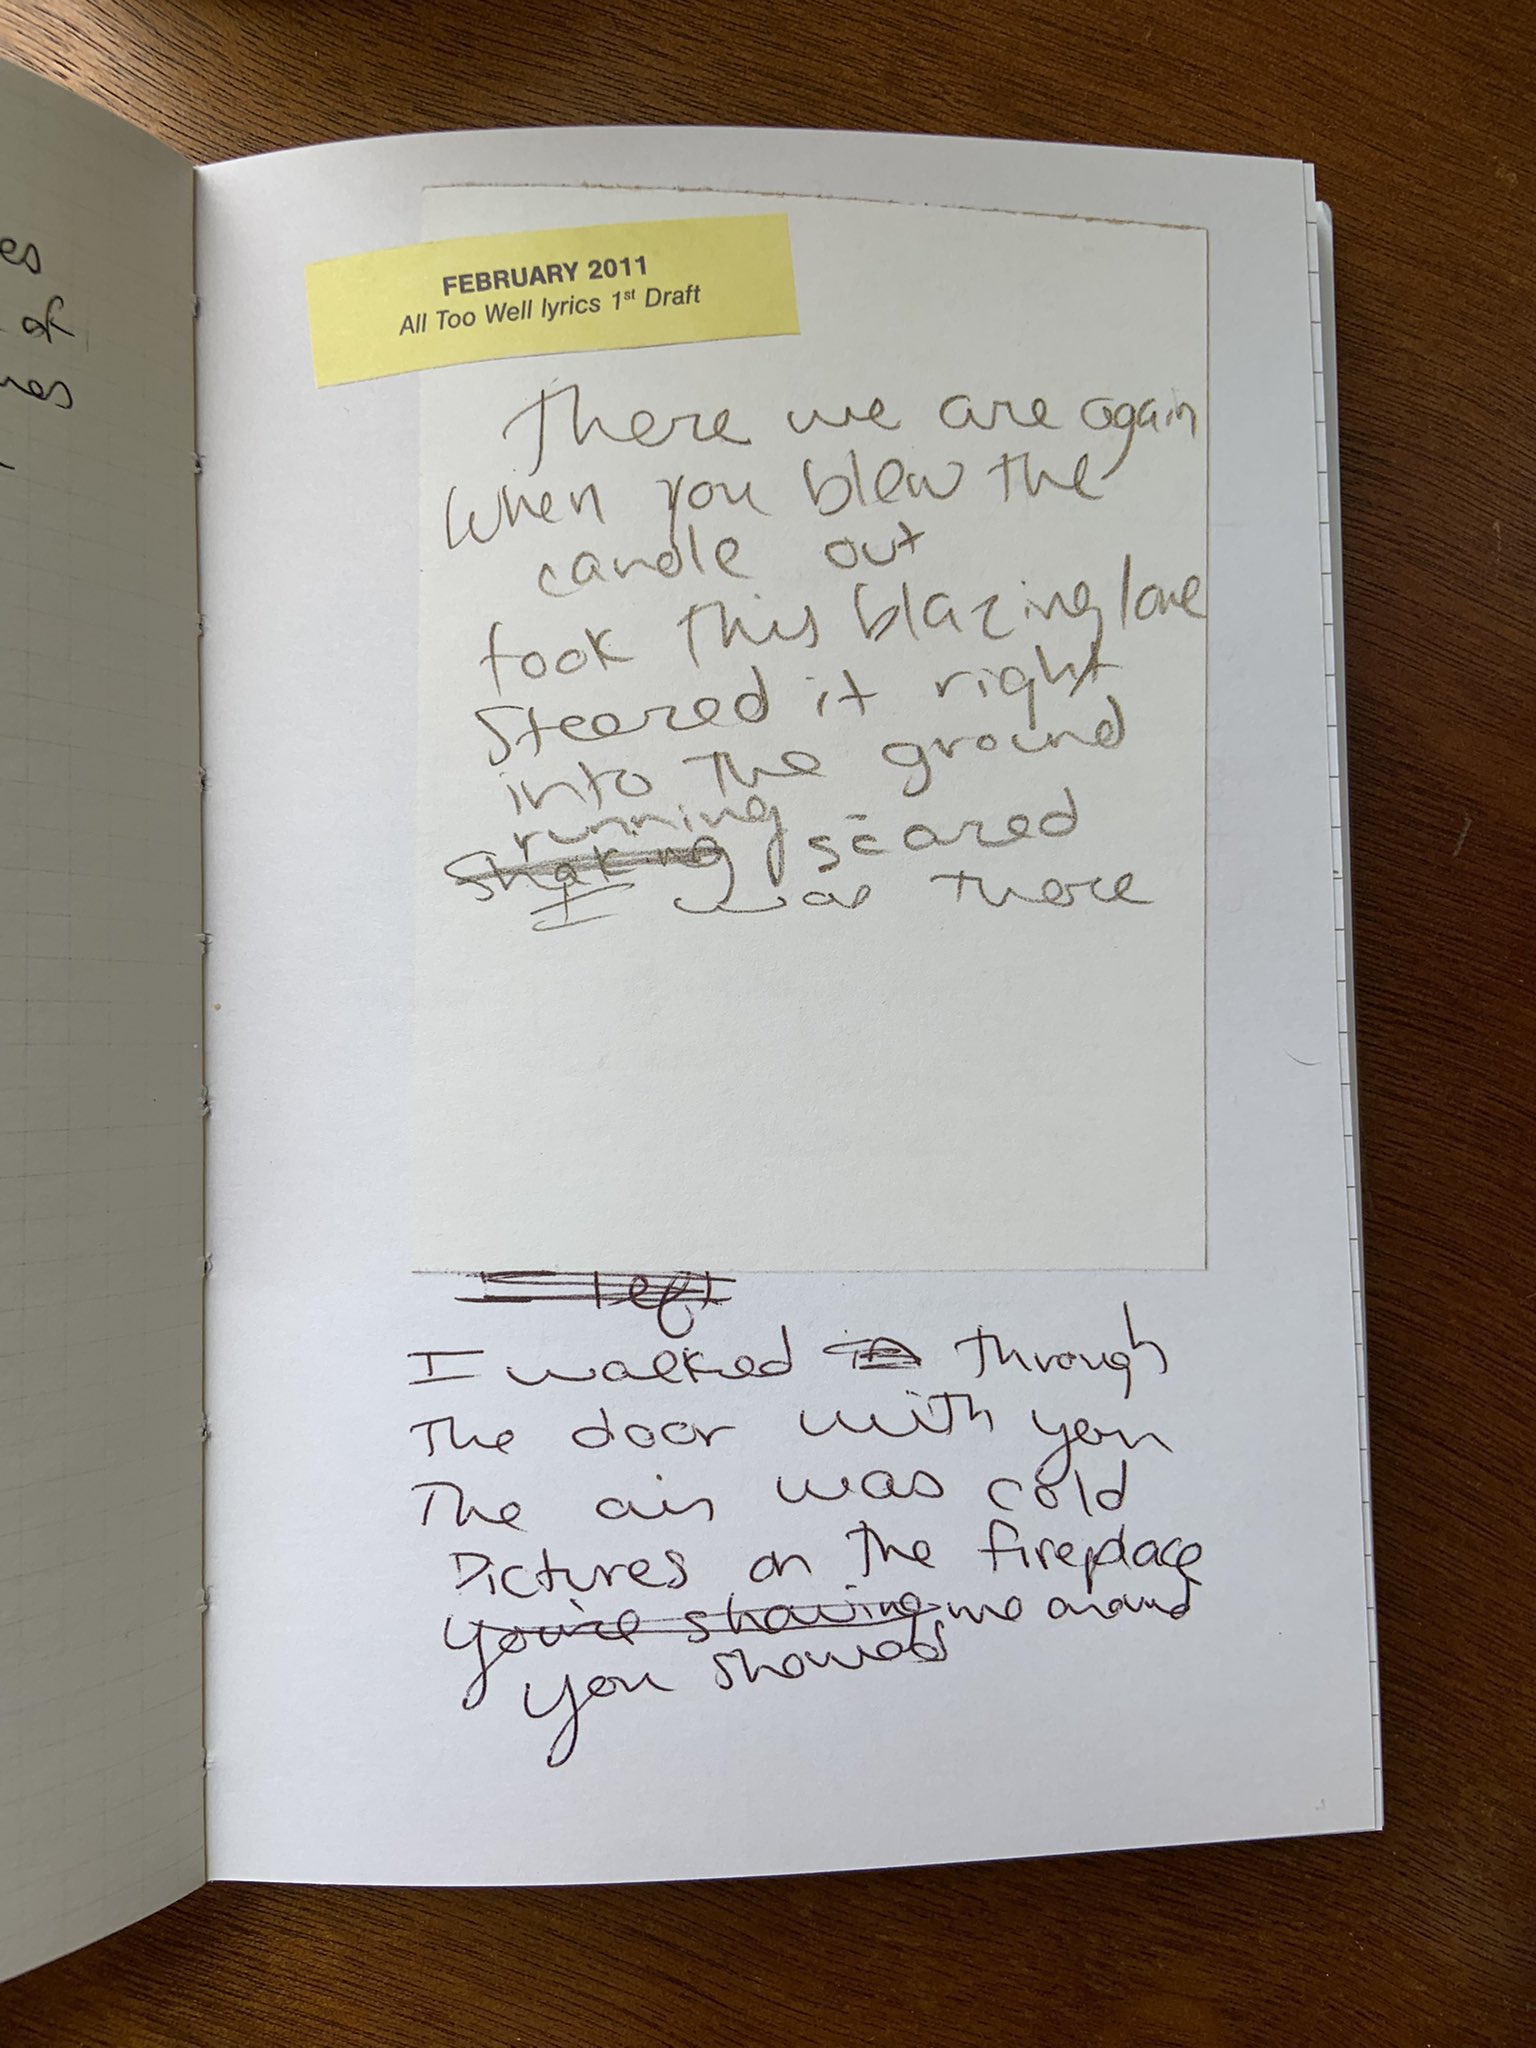 es
of
FEBRUARY 2011
All Too Well lyrics 1st Draft
There we are again
When you blew the
candle out
took this blazing love
steered it right
into the ground
running
Shaking scared
I was there
left
I walked in through
The door with you
The air was cold
Pictures on the fireplace
You're showing me around
you showed